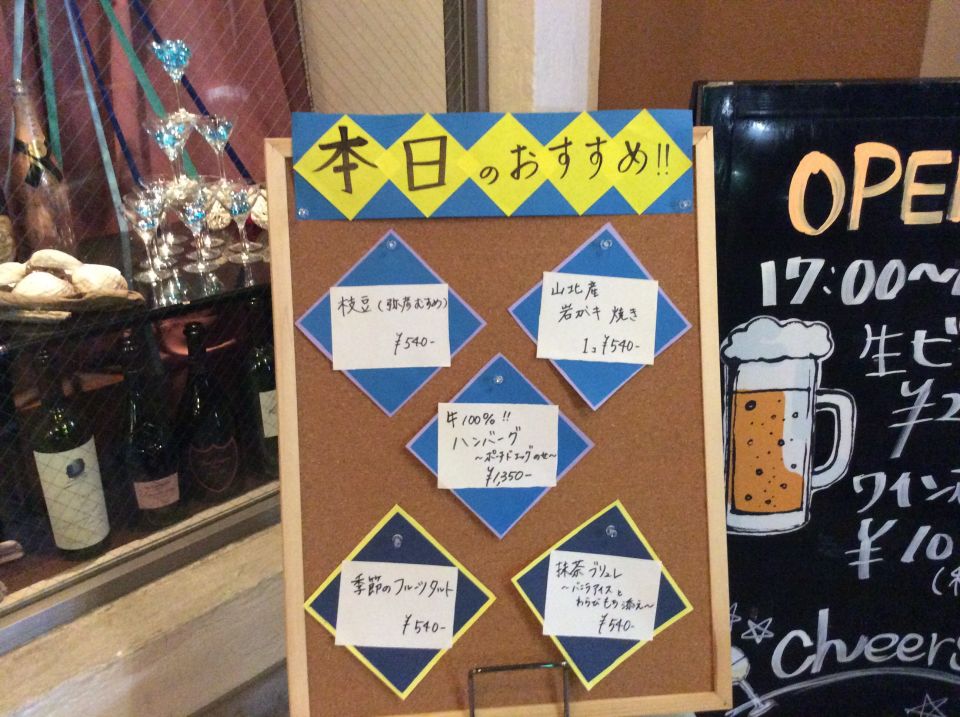 本日のおすすめ!!
枝豆(弥彦むすめ)
¥540-
山北産
岩ガキ 焼き
1コ ¥540-
牛100%!!
ハンバーグ
~ポーチドエッグのせ~
¥1,350-
季節のフルーツタルト
¥540-
抹茶ブリュレ
~バニラアイスと
わらびもち添え~
¥540-
OPE
17:00~
生ビ
¥2
ワイン
¥10
Cheers